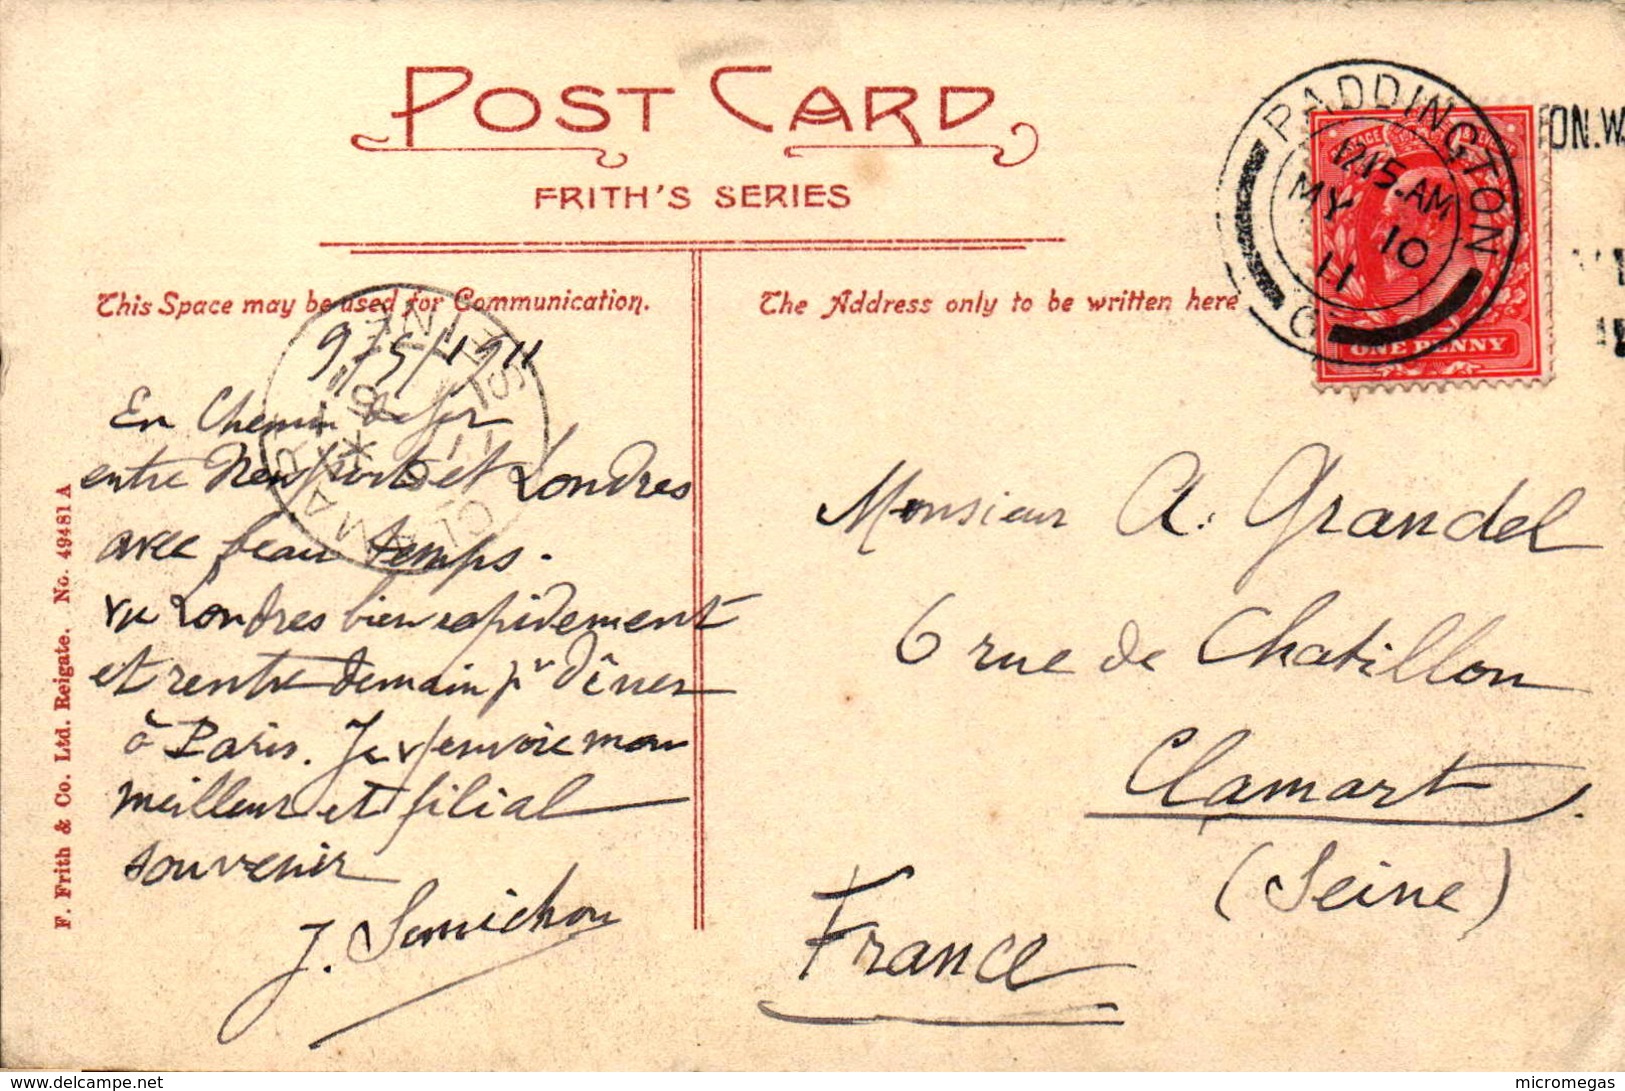 POST CARD
FRITH'S SERIES
This Space may be used for Communication.
The Address only to be written here
PADDINGTON
12.15.AM
MY 10
11
ON.W
ONE PENNY
9/5/1911
En Chemin de fer
entre Newport et Londres
avec beau temps.
vu Londres bien rapidement
et rentre demain pr dîner
à Paris. Je vs envoie mon
meilleur et filial
souvenir
J. Semichon
CLAMART
SEINE
Monsieur A. Grandel
6 rue de Chatillon
Clamart
(Seine)
France
F. Frith & Co. Ltd. Reigate. No. 49481 A
www.delcampe.net
micromegas